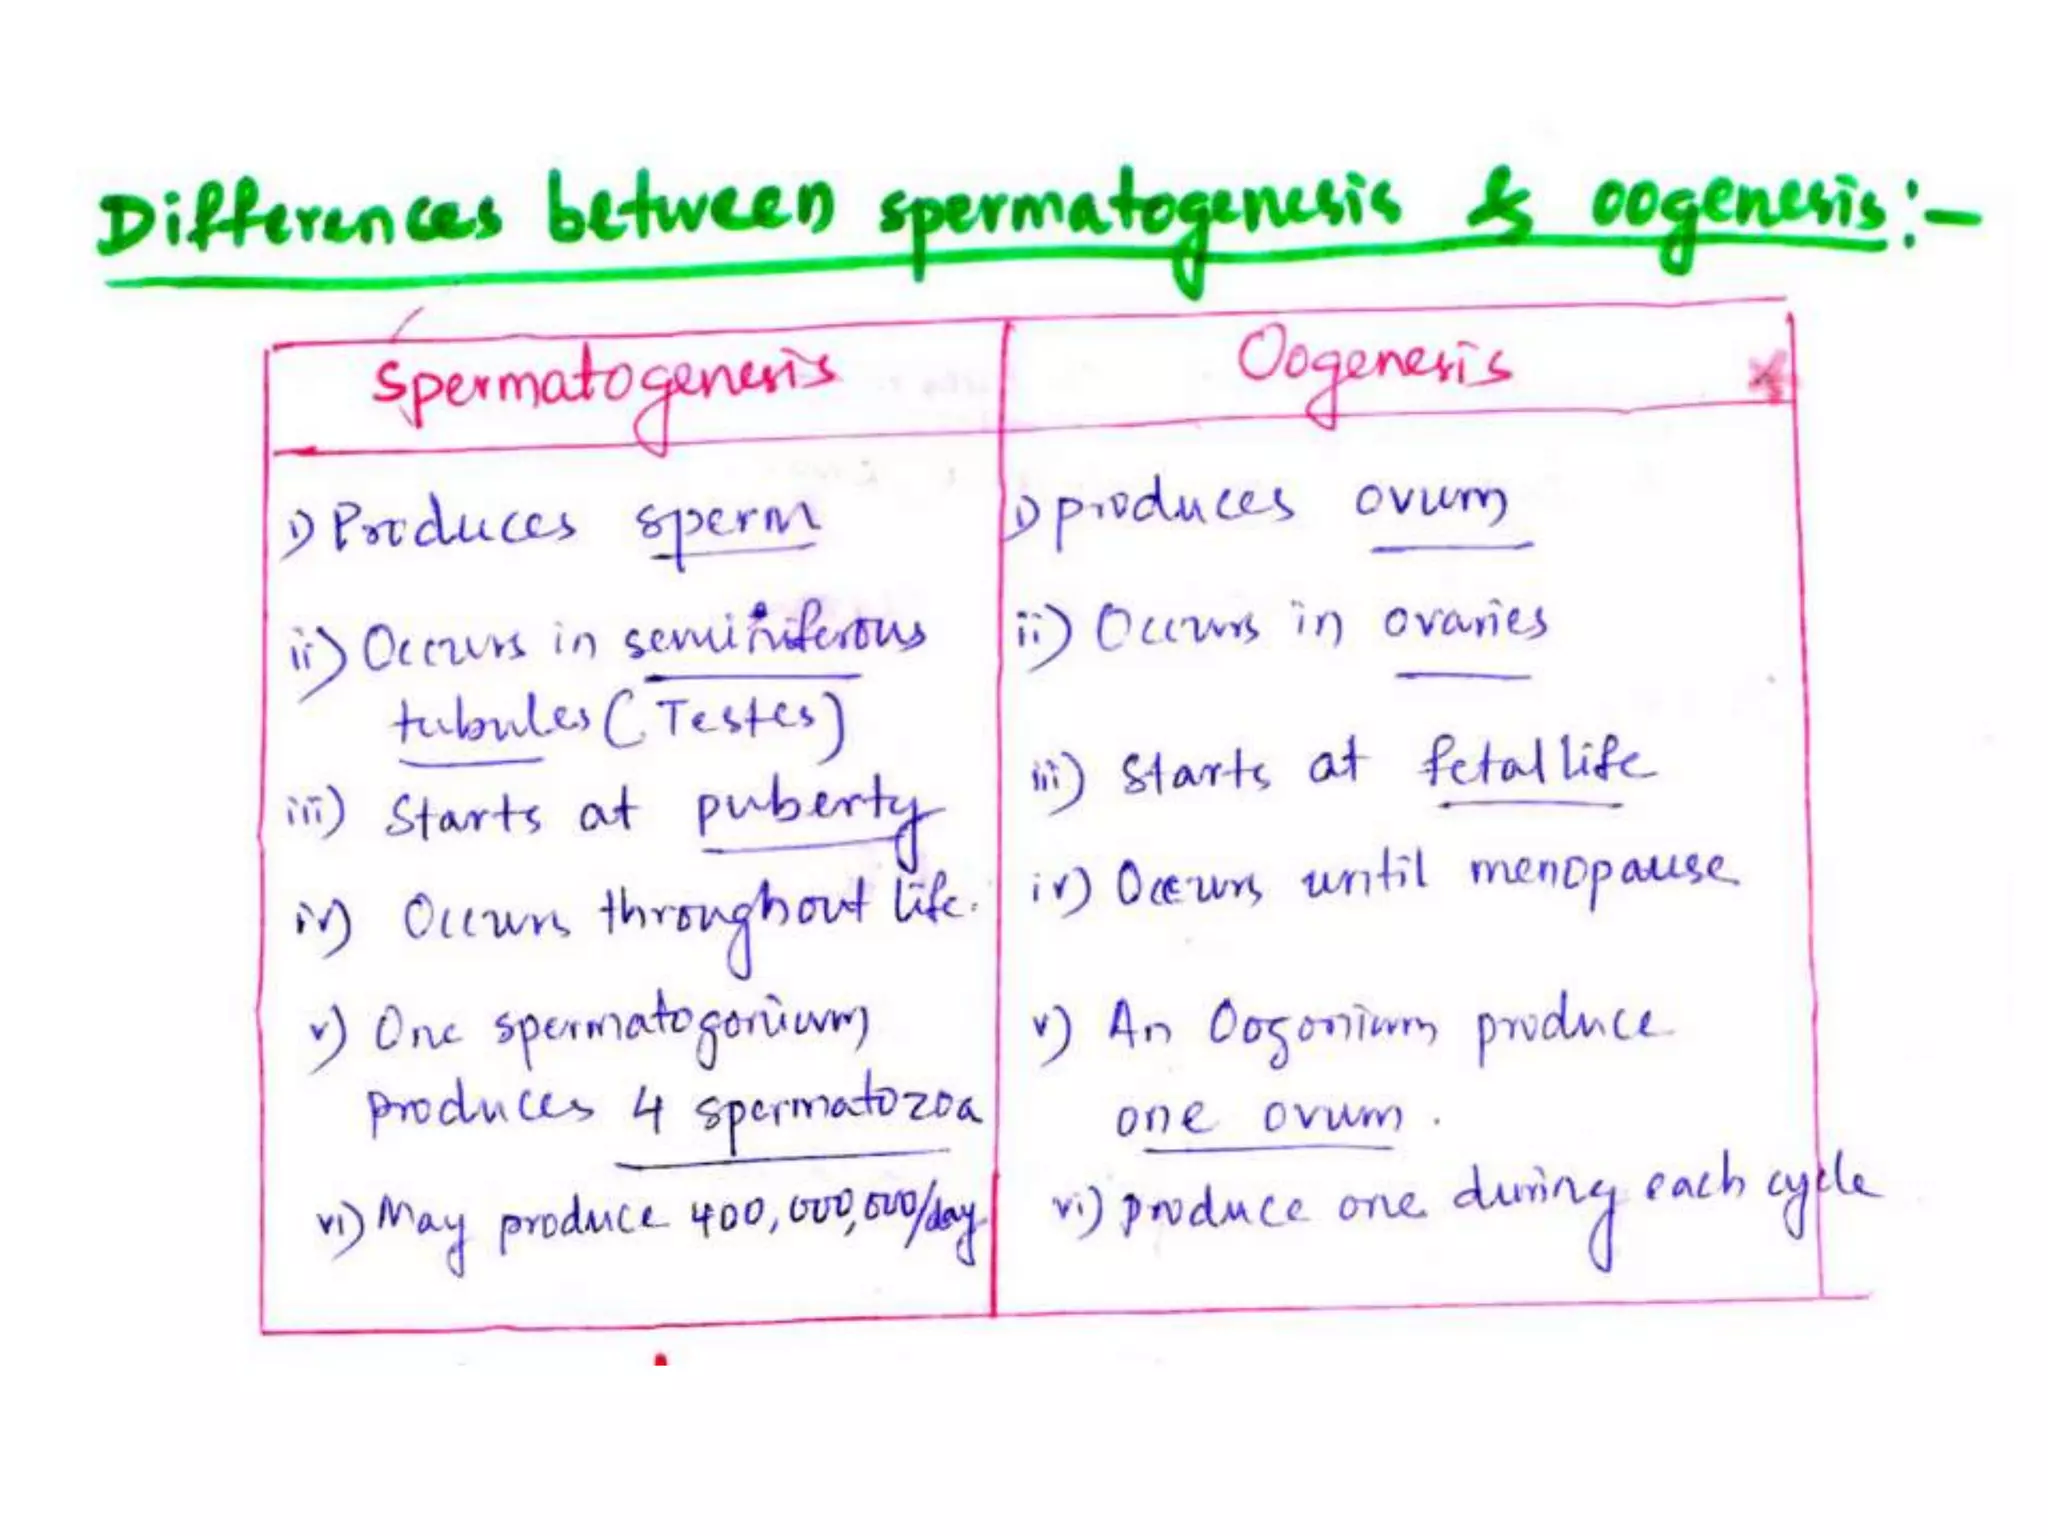 Differences between spermatogenesis & oogenesis:-
Spermatogenesis
Oogenesis
i) Produces sperm
ii) Occurs in seminiferous
tubules (Testes)
iii) Starts at puberty
iv) Occurs throughout life.
v) One spermatogonium
produces 4 spermatozoa
vi) May produce 400,000,000/day
i) produces ovum
ii) Occurs in ovaries
iii) Starts at fetal life
iv) Occurs until menopause
v) An Oogonium produce
one ovum.
vi) produce one during each cycle